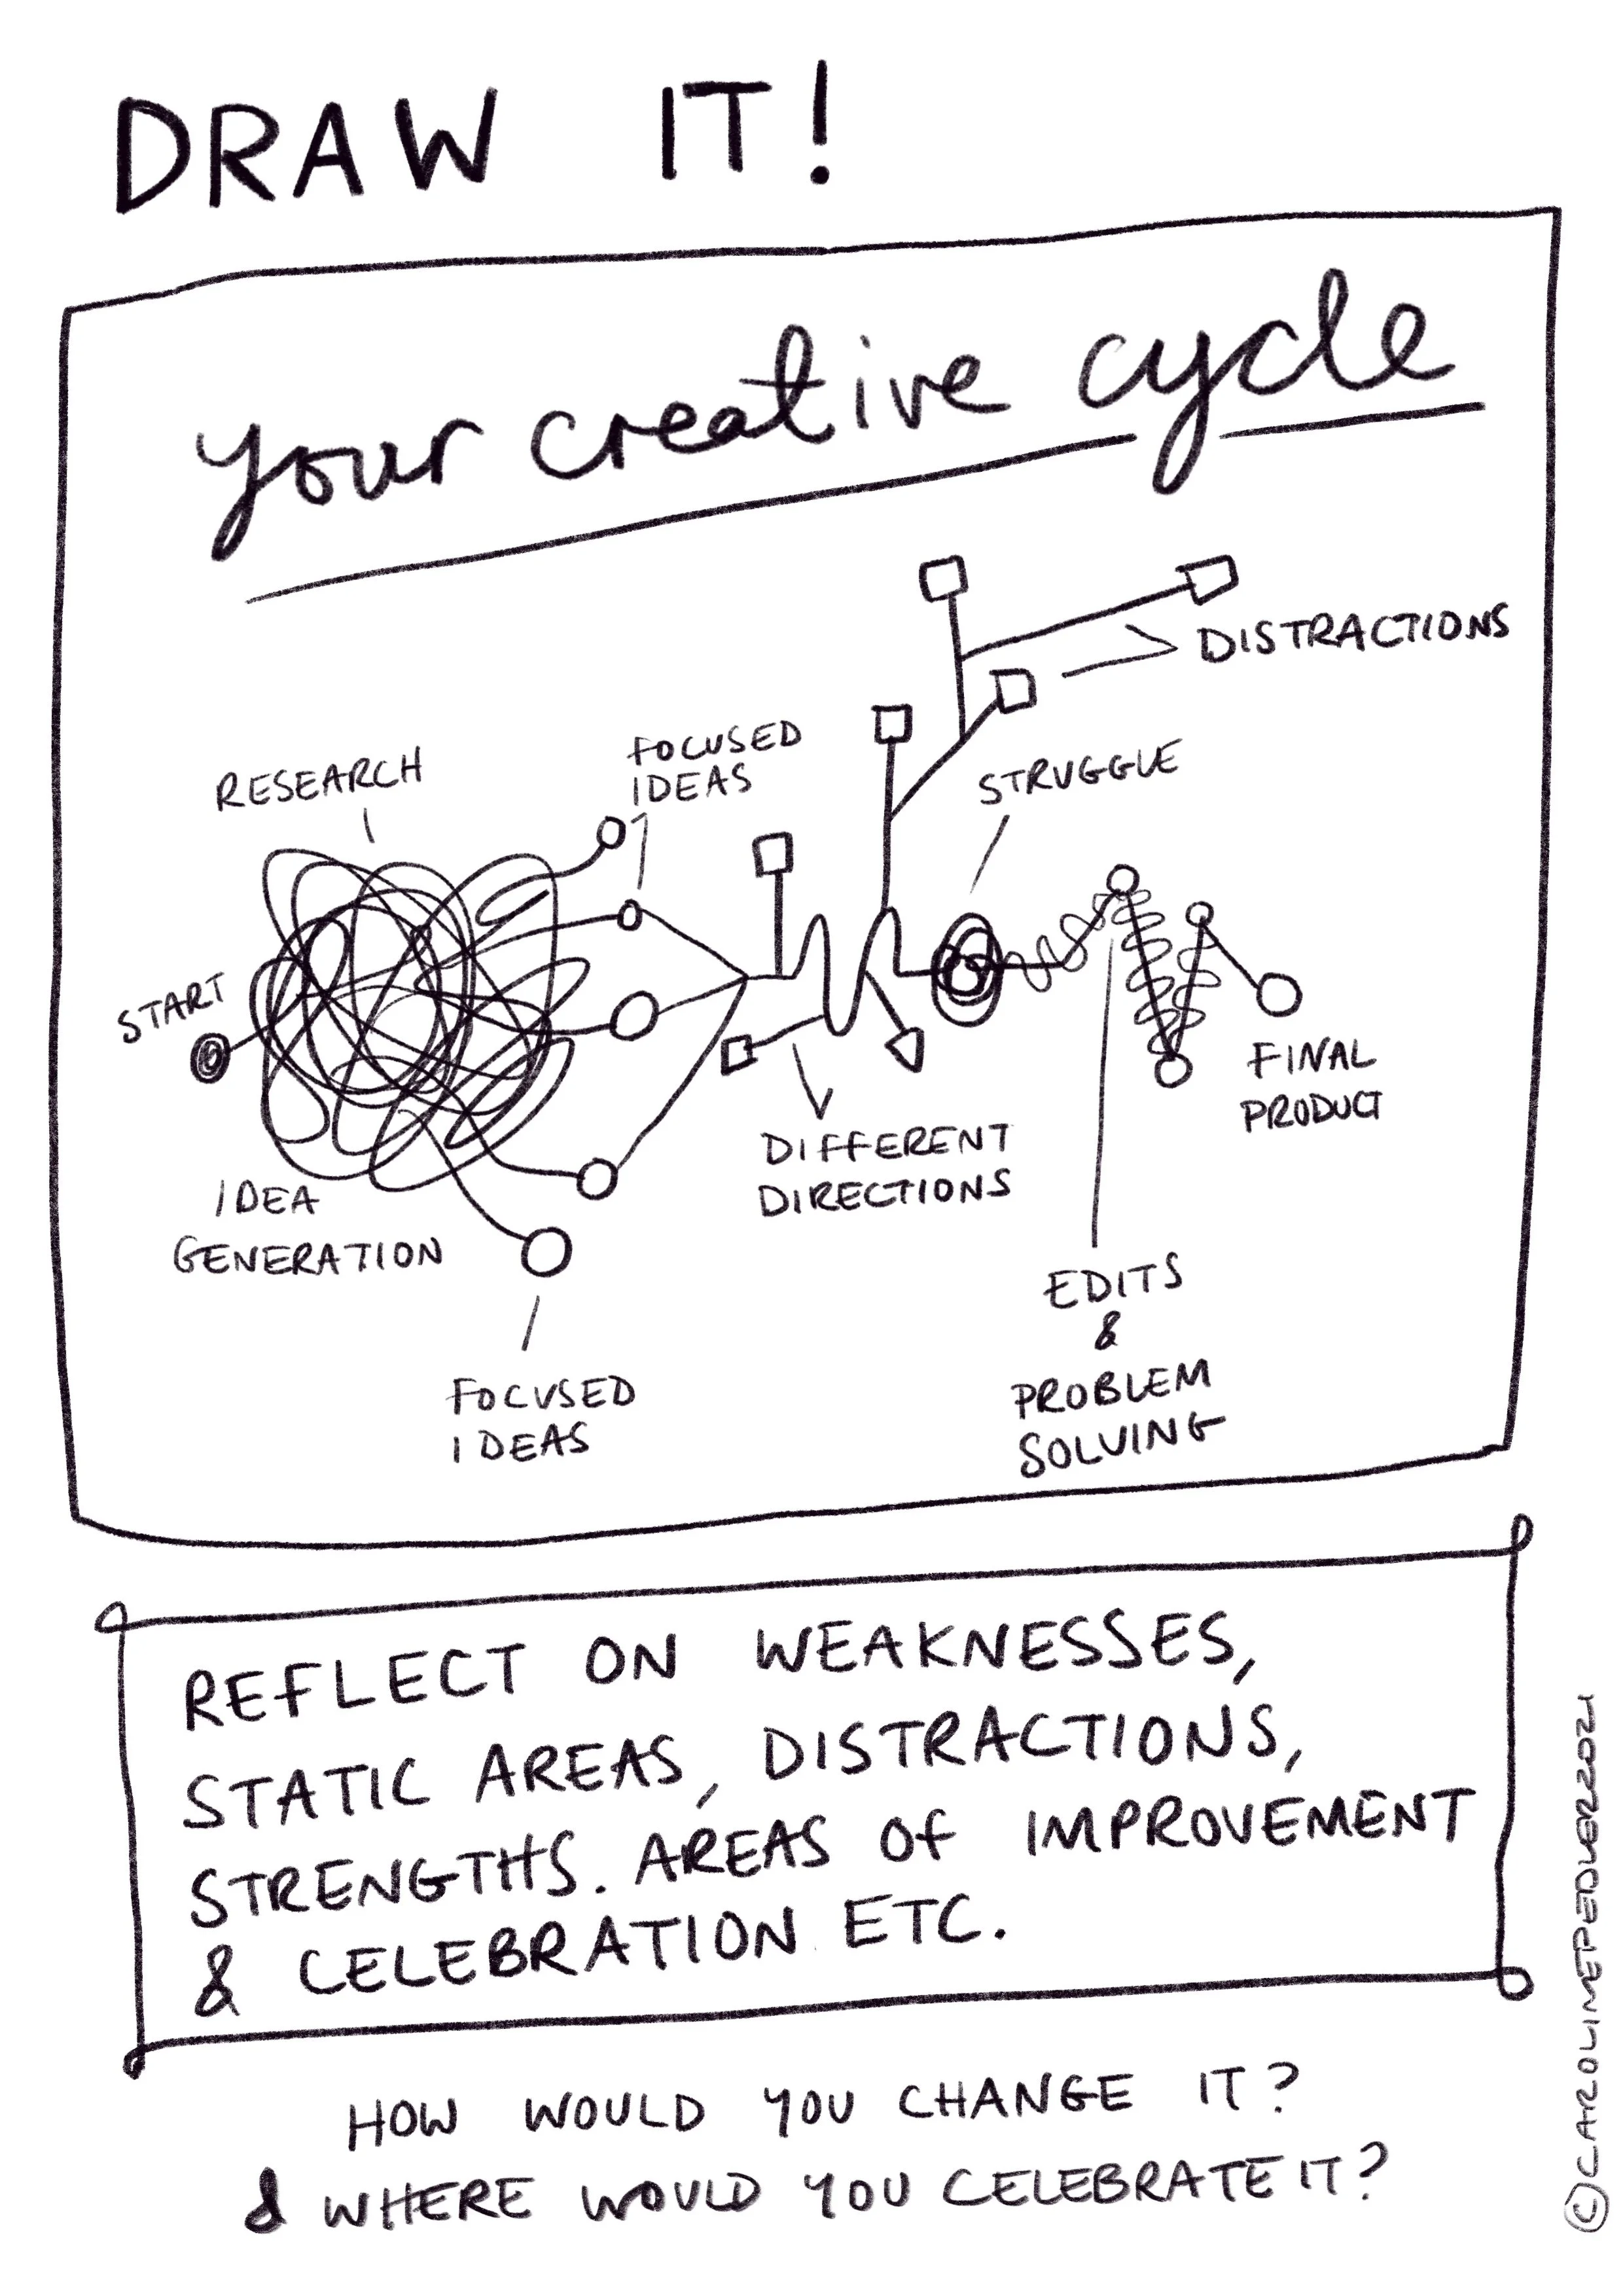 DRAW IT!
your creative cycle
DISTRACTIONS
FOCUSED
IDEAS
RESEARCH
STRUGGLE
START
FINAL
PRODUCT
DIFFERENT
DIRECTIONS
IDEA
GENERATION
EDITS
&
PROBLEM
SOLVING
FOCUSED
IDEAS
REFLECT ON WEAKNESSES,
STATIC AREAS, DISTRACTIONS,
STRENGTHS. AREAS OF IMPROVEMENT
& CELEBRATION ETC.
HOW WOULD YOU CHANGE IT?
& WHERE WOULD YOU CELEBRATE IT?
©CAROLIMEPEDLER2021